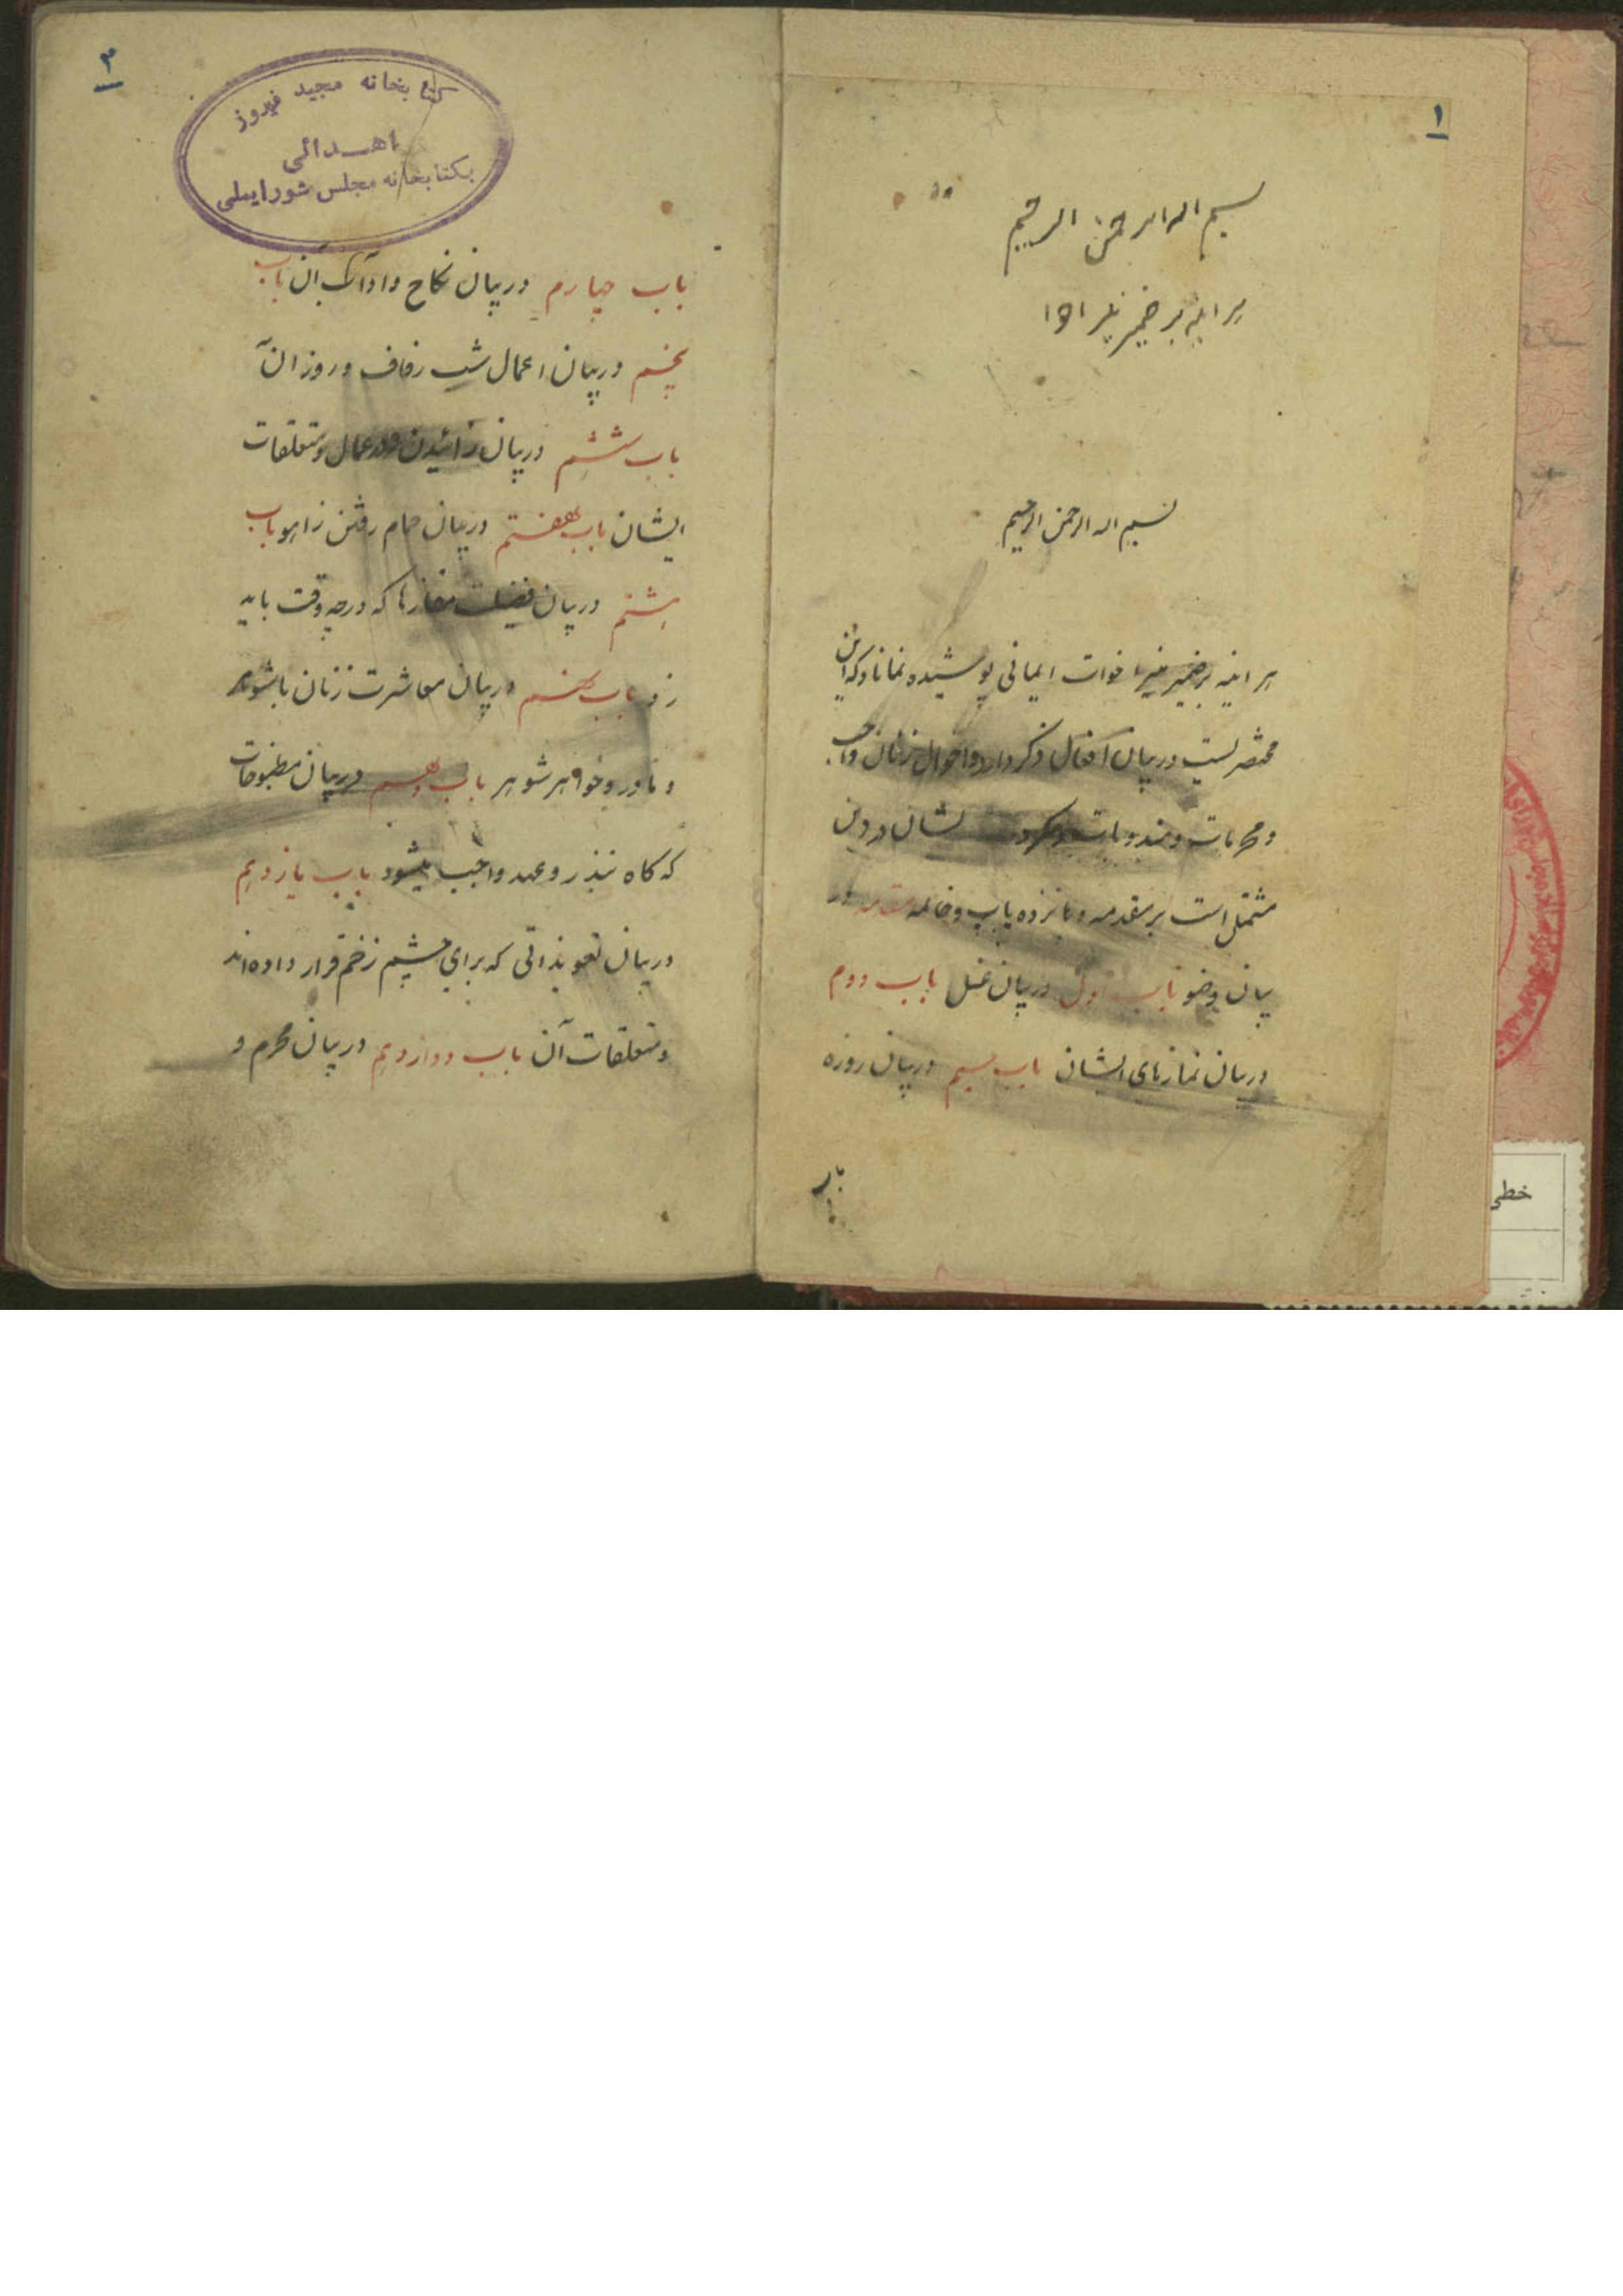 ۱
بسم الله الرحمن الرحیم
هر اینه بر ضمیر
بسم الله الرحمن الرحیم
هر اینه بر ضمیر منیر اخوات ایمانی پوشیده نماناد که این
مختصریست در بیان افعال و کردار و احوال زنان و واجب
و محرمات و مندوبات و مکروهات ایشان در دین
مشتمل است بر مقدمه و پانزده باب و خاتمه مقدمه در
بیان وضو باب اول در بیان غسل باب دوم
در بیان نمازهای ایشان باب سیم در بیان روزه
باب
۲
کتابخانه مجید فیروز
اهدائی
بکتابخانه مجلس شورایملی
باب چهارم در بیان نکاح و اداب آن باب
پنجم در بیان اعمال شب زفاف و روز آن
باب ششم در بیان زائیدن و اعمال و متعلقات
ایشان باب هفتم در بیان حمام رفتن زاهو باب
هشتم در بیان فضیلت نمازها که در چه وقت باید
زد باب نهم در بیان معاشرت زنان با شوهر
و مادر و خواهر شوهر باب دهم در بیان مطبوخات
که گاه بنذر و عهد واجب میشود باب یازدهم
در بیان تعویذاتی که برای چشم زخم قرار داده‌اند
و متعلقات آن باب دوازدهم در بیان محرم و
خطی